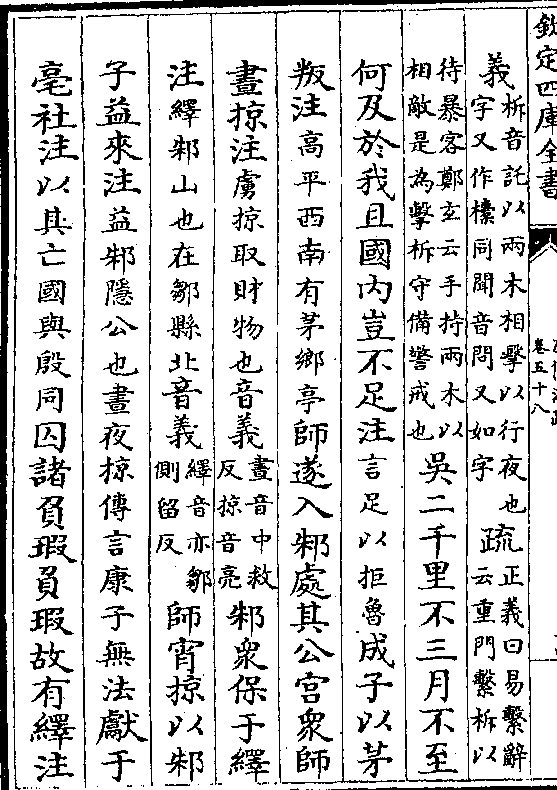 欽定四庫全書
卷五十八
義柝音託以兩木相擊以行夜也字又作㯓同聞音問又如字疏正義曰易繫辭云重門擊柝以
待暴客鄭玄云手持兩木以相敵是為擊柝守備警戒也吳二千里不三月不至
何及於我且國内豈不足注言足以拒魯成子以茅
叛注高平西南有茅鄉亭師遂入邾處其公宮衆師
晝掠注虜掠取財物也音義晝音中救反掠音亮邾衆保于繹
注繹邾山也在鄒縣北音義繹音亦鄒側留反師宵掠以邾
子益來注益邾隱公也晝夜掠傳言康子無法獻于
亳社注以其亡國與殷同囚諸負瑕負瑕故有繹注